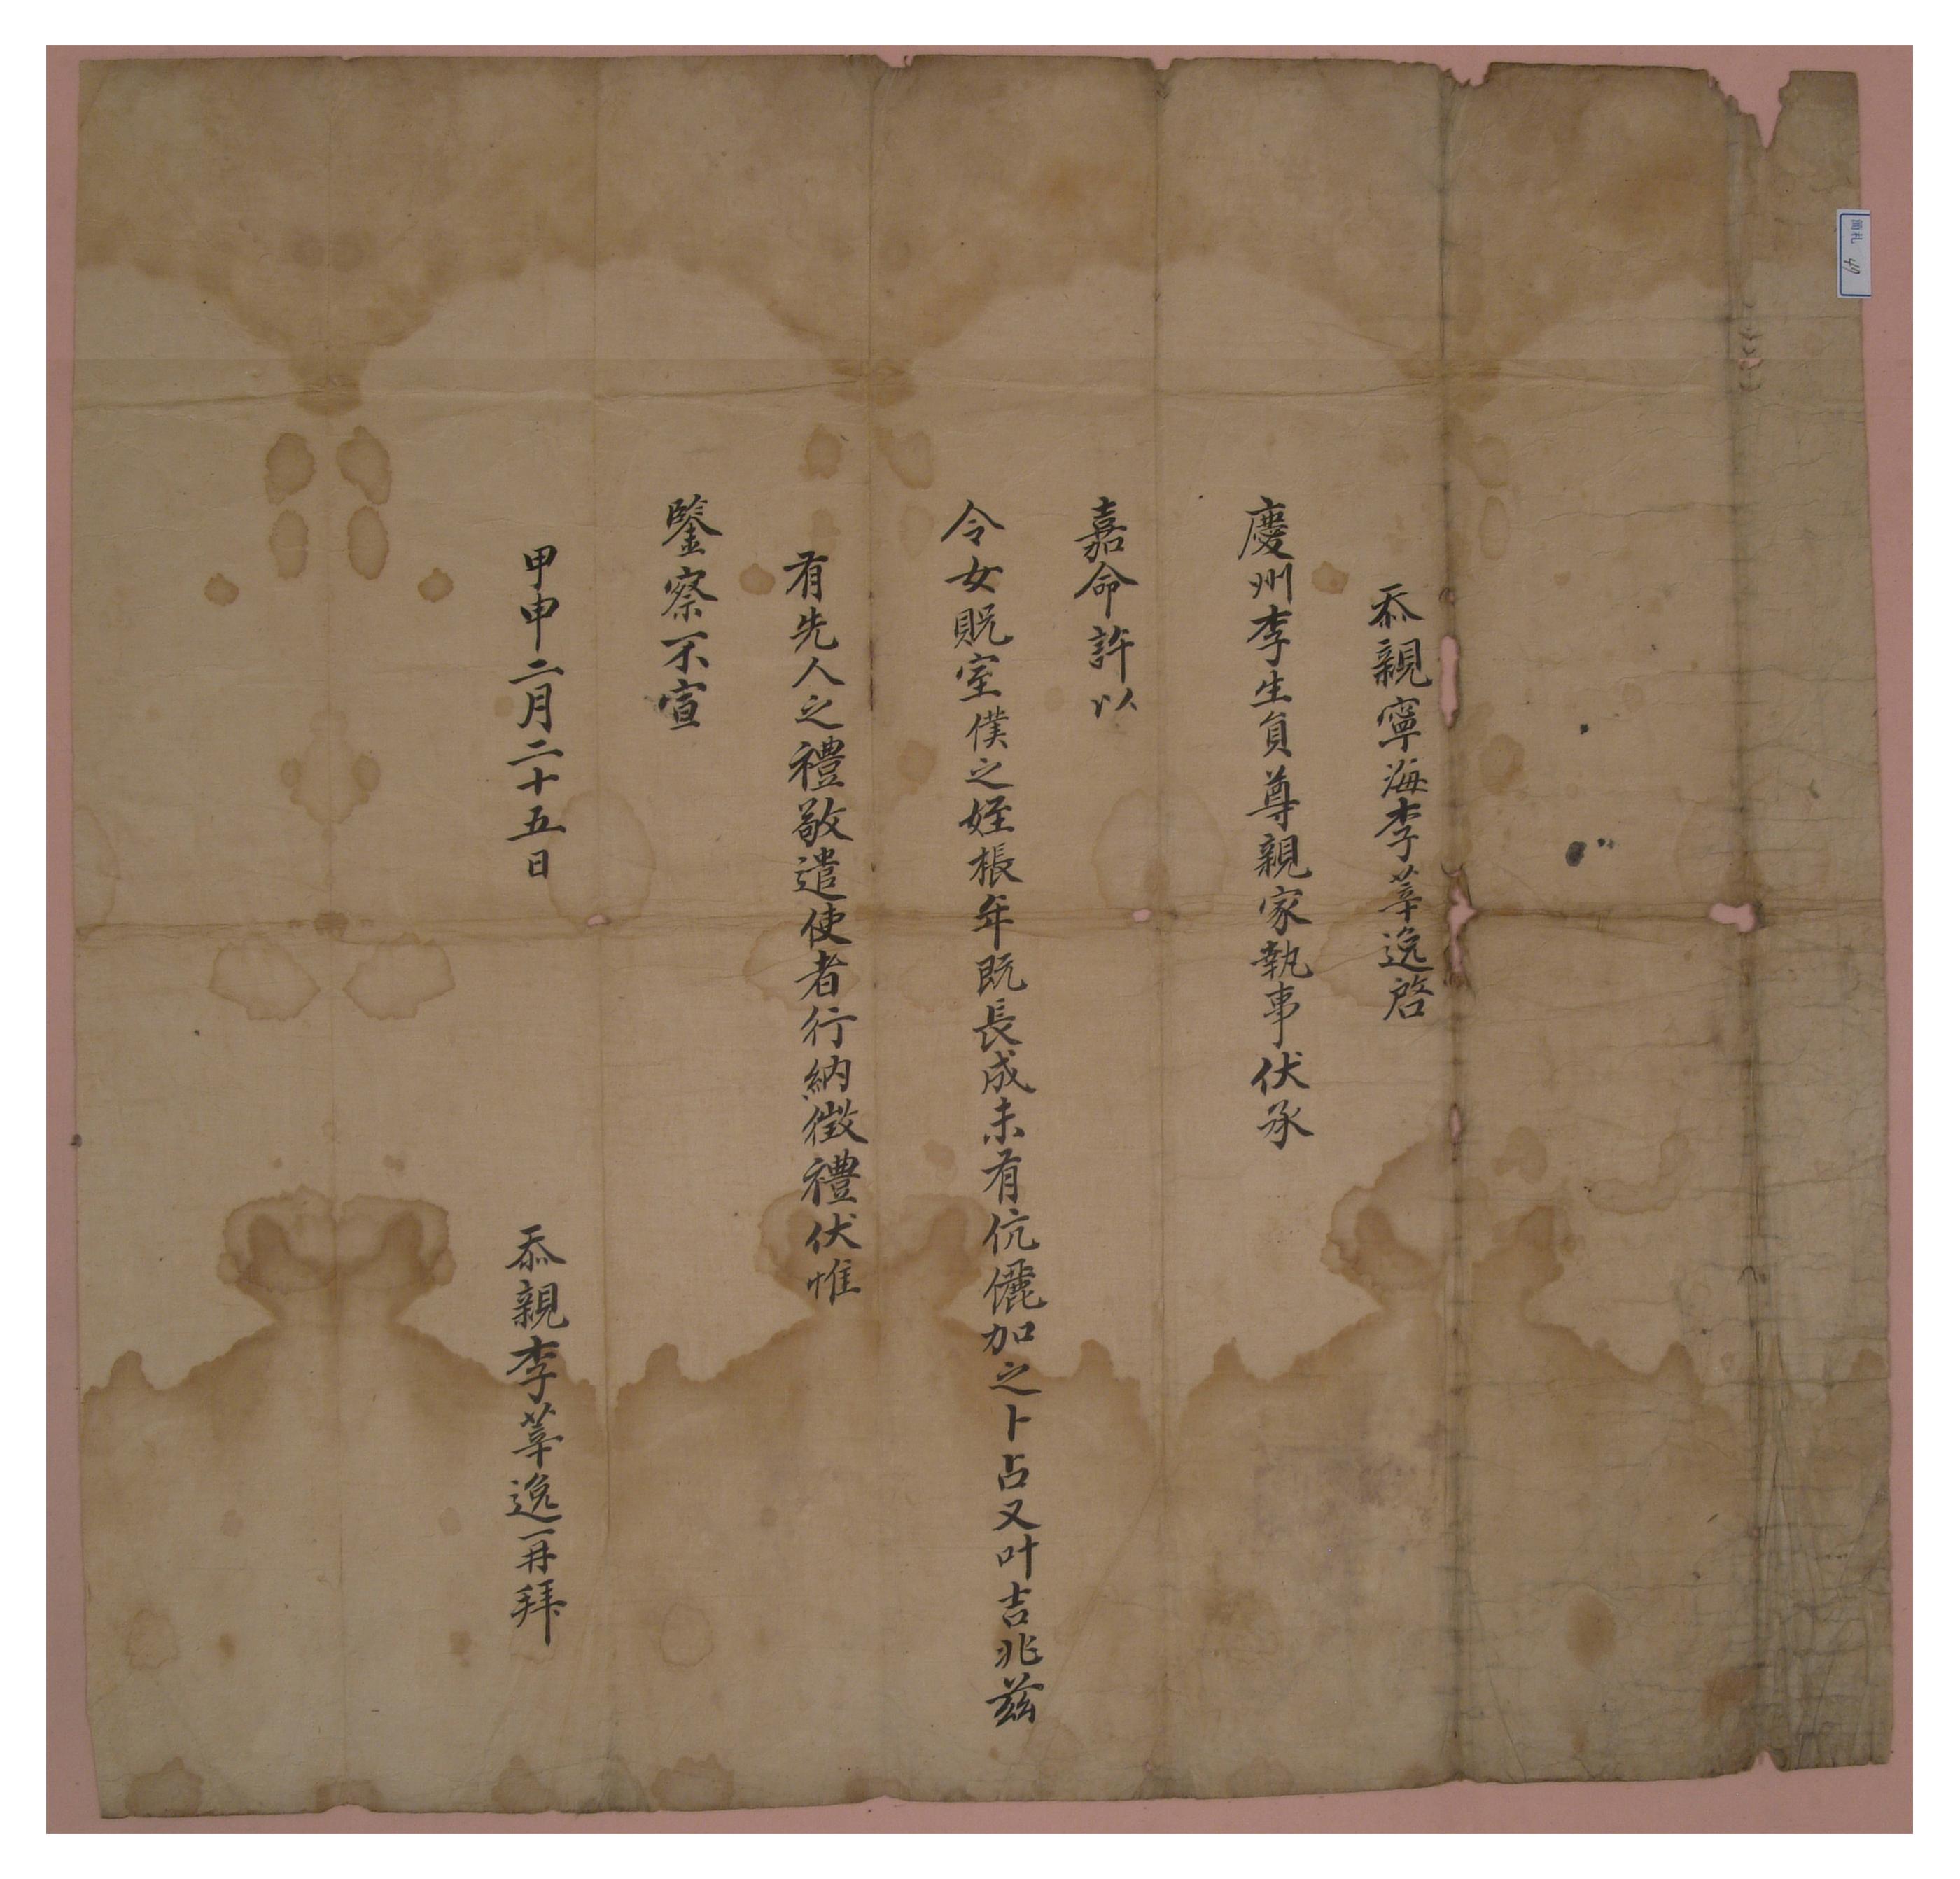 忝親寧海李莘逸啓
慶州李生員尊親家執事伏承
嘉命許以
令女貺室僕之姪棖年既長成未有伉儷加之卜占又叶吉兆茲
有先人之禮敬遣使者行納徵禮伏惟
鑒察不宣
甲申二月二十五日
忝親李莘逸再拜
簡札 49